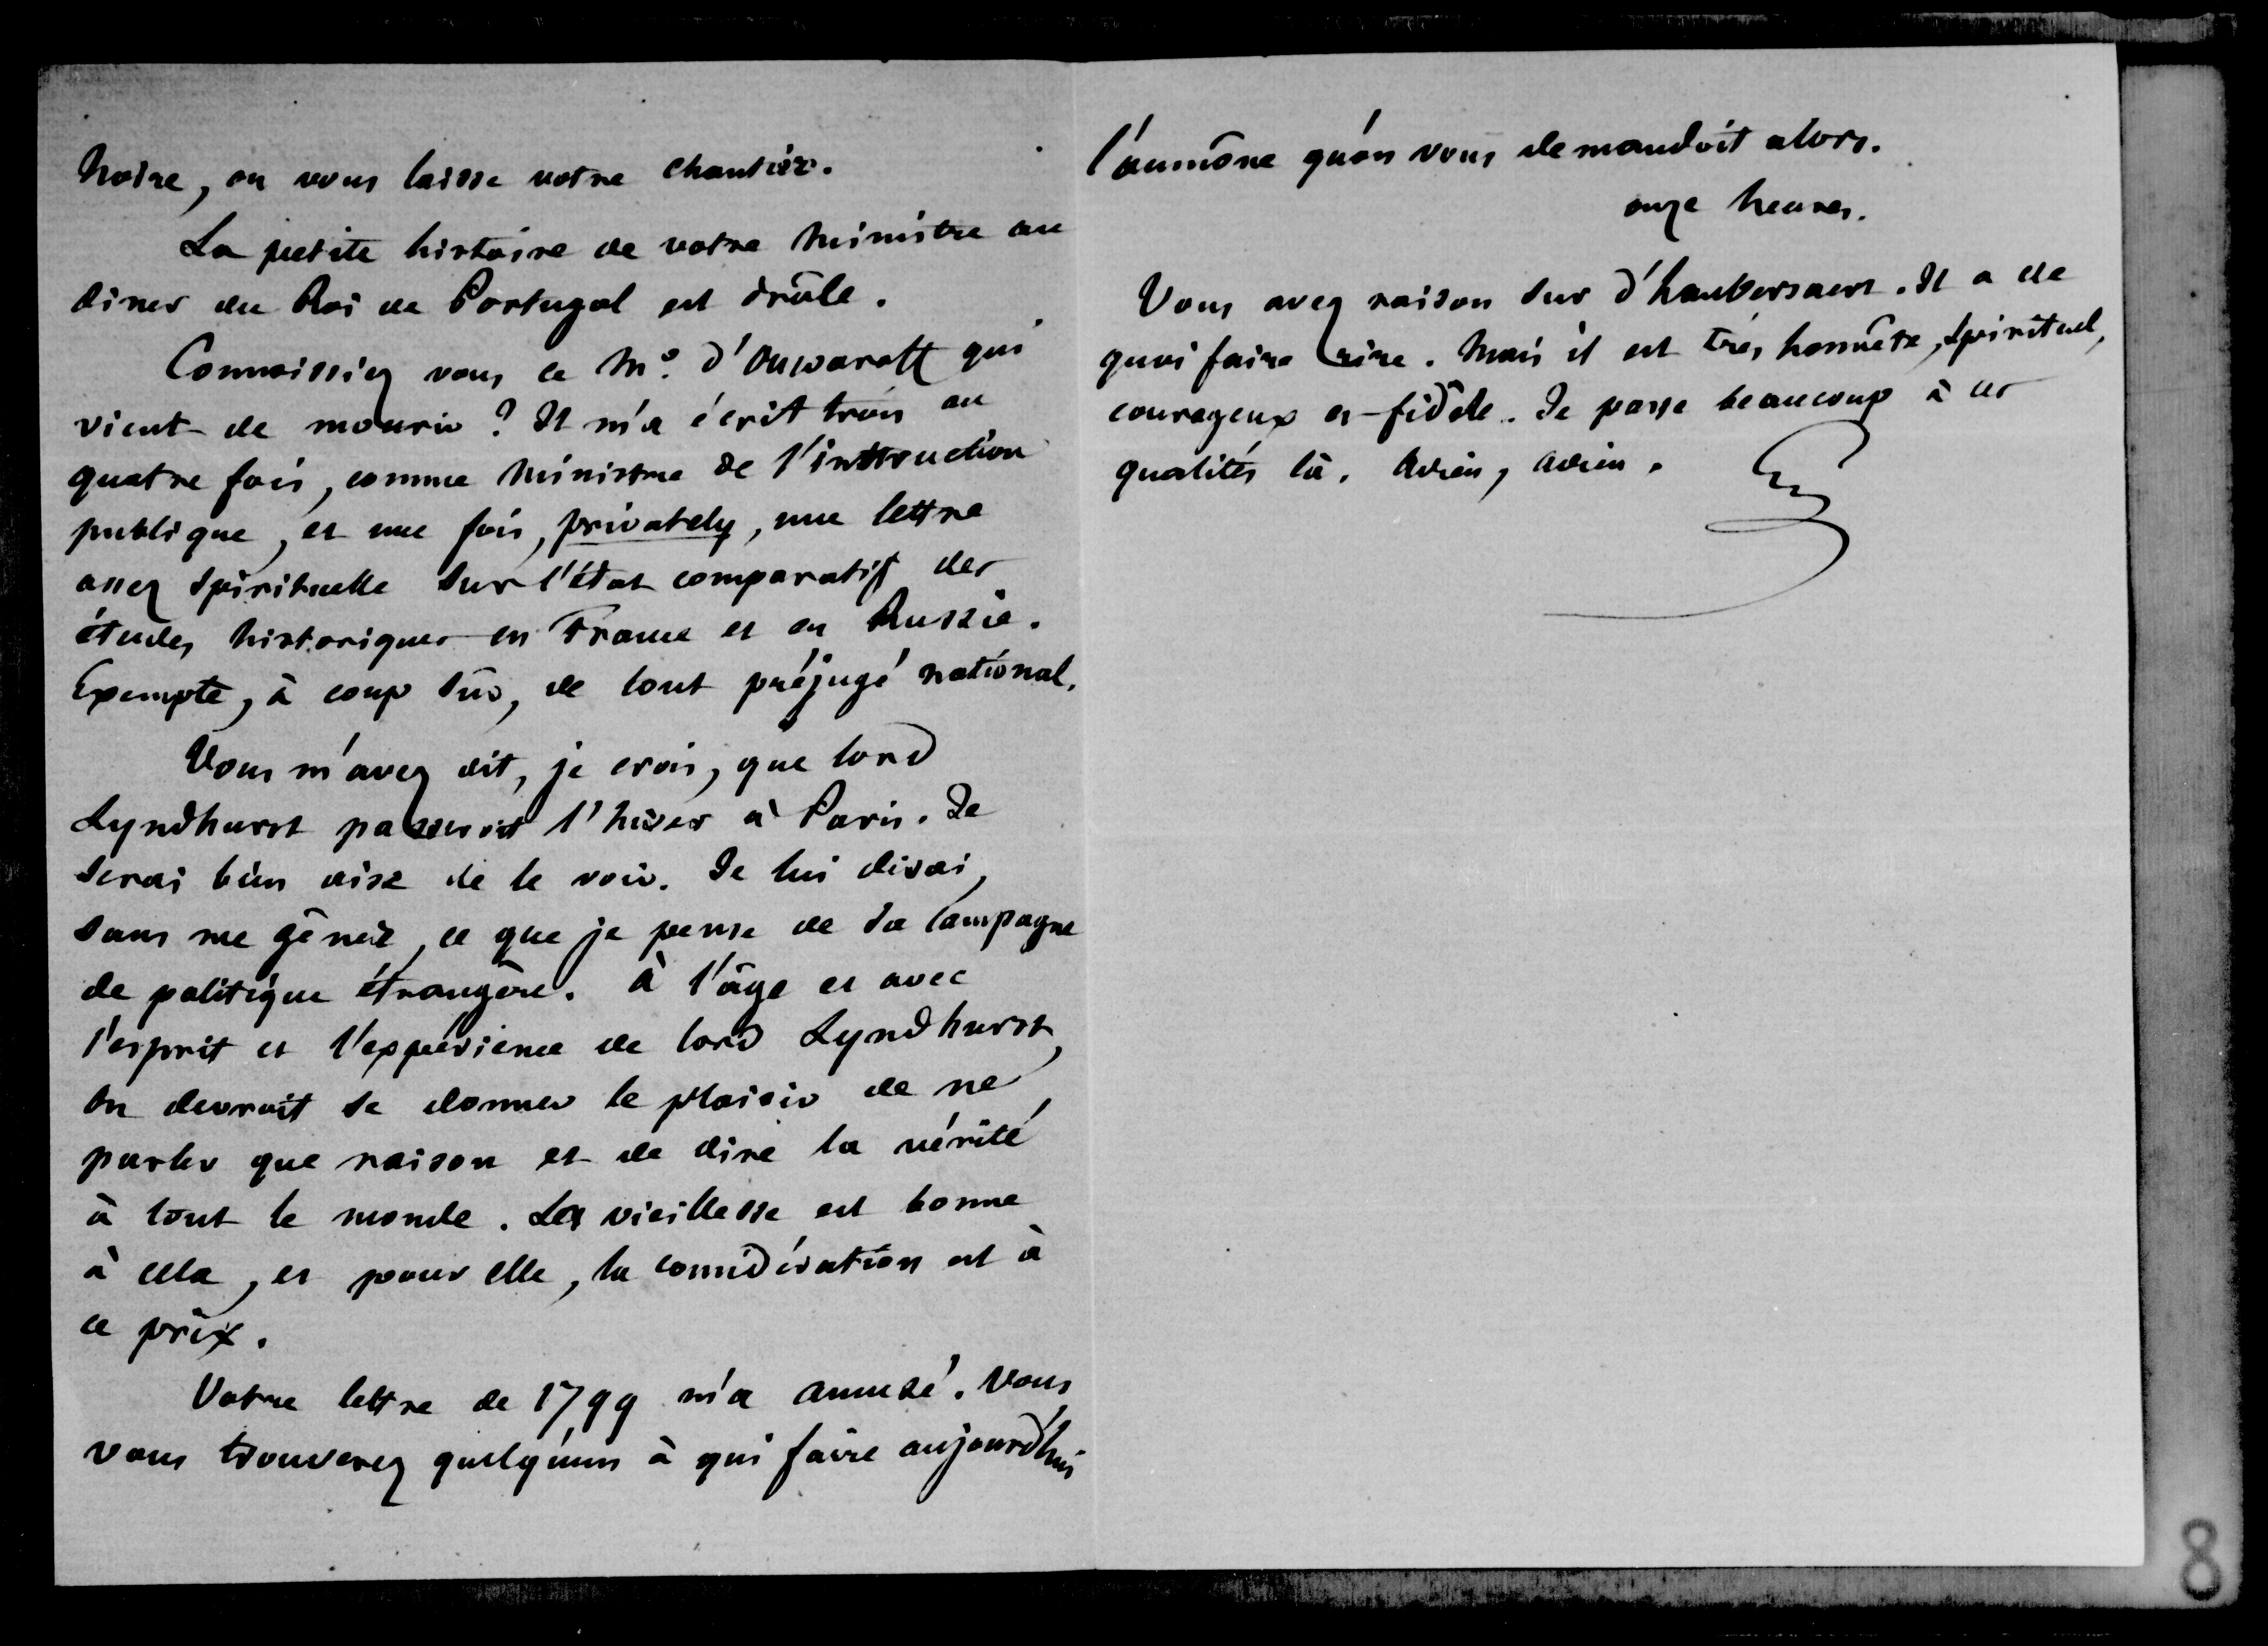 Noire, on vous laisse votre chantier.
La petite histoire de votre Ministre au
diner du Roi de Portugal est drôle.
Connaissiez vous ce Mr. d'Ouwaroff qui
vient de mourir ? Il m'a écrit trois ou
quatre fois, comme Ministre de l'instruction
publique, et une fois, privately, une lettre
assez spirituelle sur l'état comparatif des
études historiques en France et en Russie.
Exempte, à coup sûr, de tout préjugé national.
Vous m'avez dit, je crois, que lord
Lyndhurst passeroit l'hiver à Paris. Je
serai bien aise de le voir. Je lui dirai,
sans me gêner, ce que je pense de sa campagne
de politique étrangère. à l'âge et avec
l'esprit et l'expérience de lord Lyndhurst,
on devroit se donner le plaisir de ne
parler que raison et de dire la vérité
à tout le monde. La vieillesse est bonne
à cela, et pour elle, la considération est à
ce prix.
Votre lettre de 1799 m'a amusé. Vous
vous trouverez quelqu'un à qui faire aujourd'hui
l'aumône qu'on vous demandoit alors.
onze heures.
Vous avez raison sur d'haubersaert. Il a de
quoi faire rire. Mais il est très honnête, spirituel,
courageux et fidèle. Je passe beaucoup à ces
qualités là. Adieu, adieu.
8